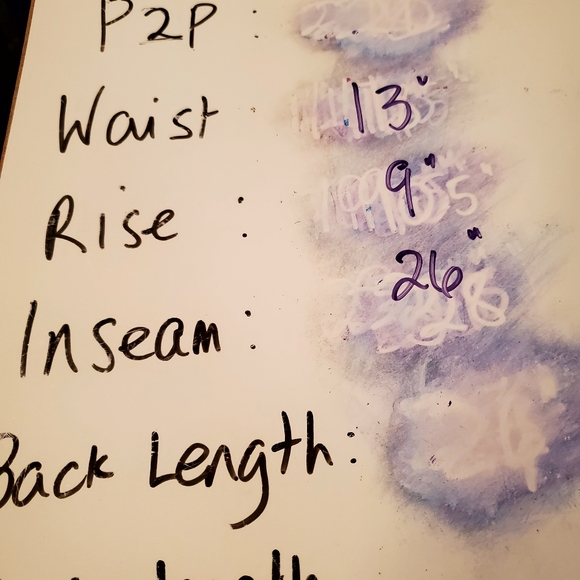 P2P :
Waist : 13"
Rise : 9"
Inseam : 26"
Back Length :
Length